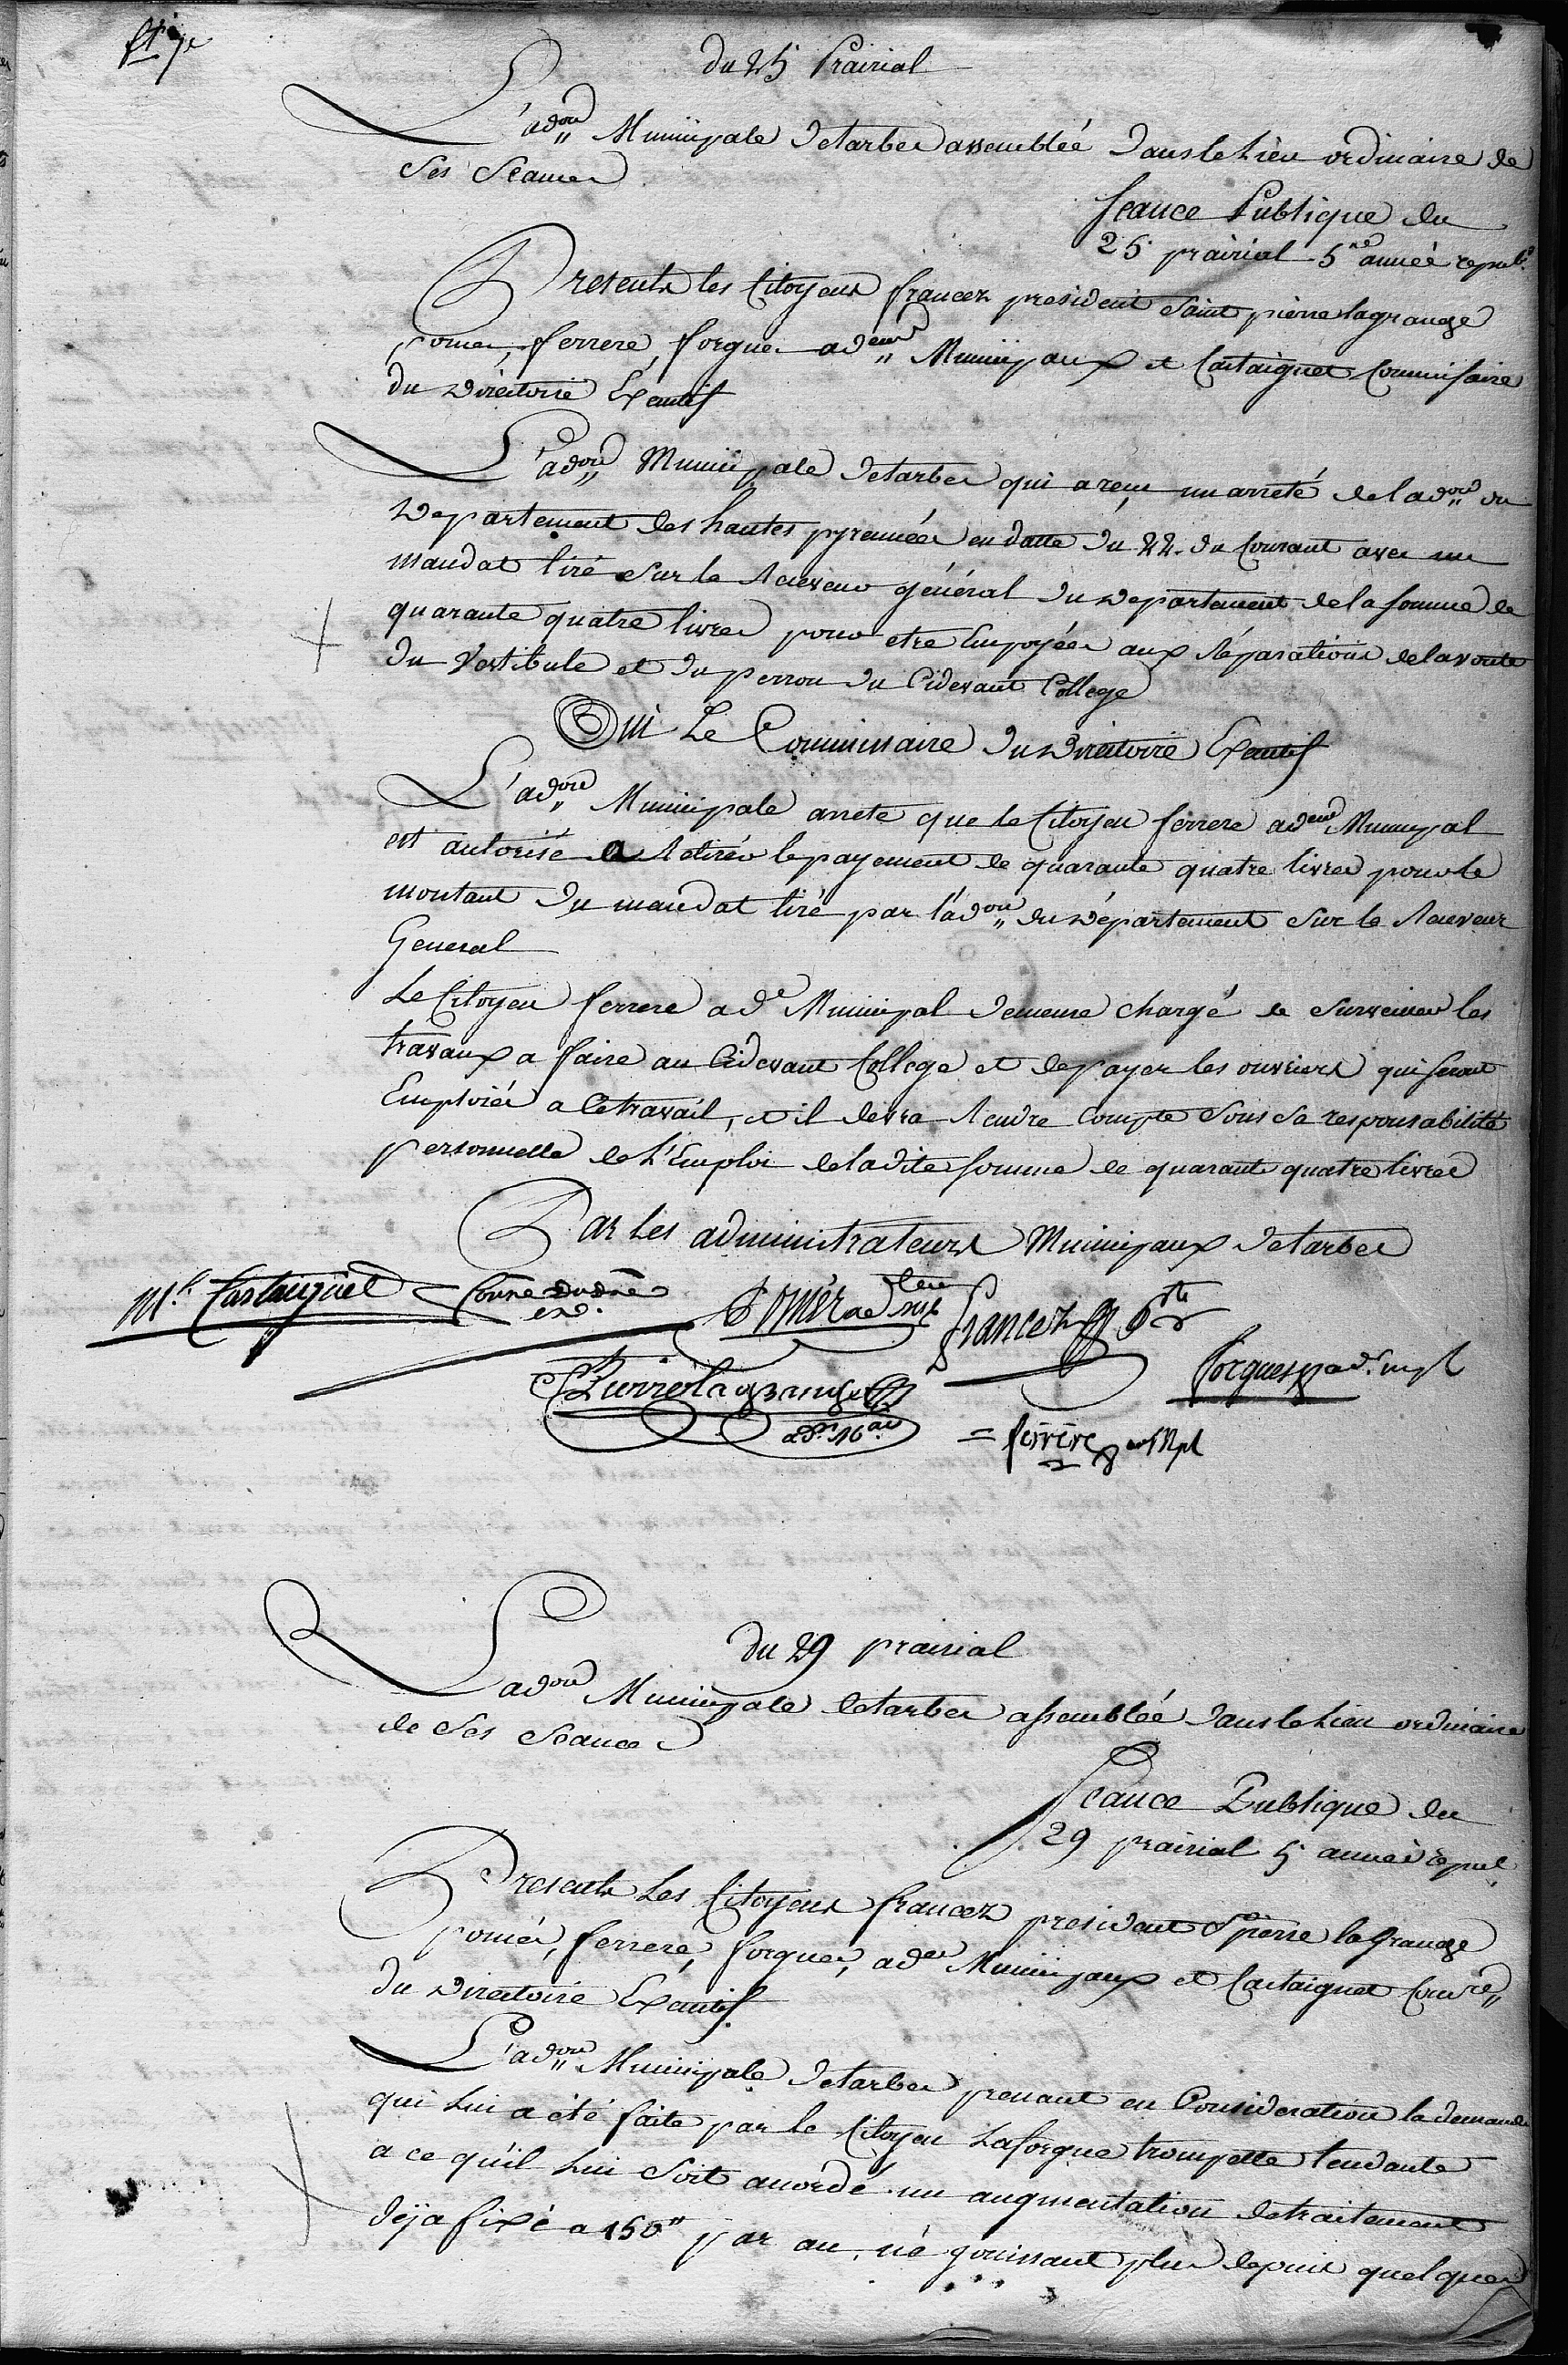 du 25 Prairial
L'ad.on Municipale de tarbes assemblée dans le Lieu ordinaire de
Ses Séances
Seance Publique du
25 prairial 5.me année repub.
Presents les Citoyens francez president Saint pierre lagrange
pomes, ferrere, forgues ad.eurs Municipaux et Castaignet Commissaire
du Directoire Executif
L'ad.on Municipale de tarbes qui a reçu un arreté de l'ad.on du
Departement des hautes pyrennées en datte du 22. du Courant avec un
mandat tiré Sur le Receveur général du Departement de la somme de
quarante quatre livres pour etre Employées aux réparations de la voute
du Vestibule et du perron du Cidevant College
Oui Le Commissaire du Directoire Executif
L'ad.on Municipale arrete que le Citoyen ferrere ad.eur Municipal
est autorisé a Retirer le payement de quarante quatre livres pour le
montant du mandat tiré par l'ad.on du Département Sur le Receveur
General
Le Citoyen ferrere ad.r Municipal demeure chargé de Surveiller les
travaux a faire au Cidevant College et de payer les ouvriers qui seront
Emploiés a Ce travail, et il devra Rendre Compte Sous Sa responsabilité
personnelle de L'Emploi de ladite somme de quarante quatre livres
Par Les administrateurs Municipaux de tarbes
M.l Castaignet Com.re du d.re ex.
Pomér ad.eur mp
francez p.dt
St Pierre lagrange ad.r
forgues ad.r mpl
= ferrère ad Mpl
du 29 prairial
L'ad.on Municipale de tarbes assemblée dans le Lieu ordinaire
de Ses Seances
Seance Publique du
29 prairial 5 année repub
Presents Les Citoyens francez president St pierre lagrange
pomés, ferrere, forgues, ad.rs Municipaux et Castaignet Com.re
du Directoire Executif.
L'ad.on Municipale de tarbes prenant en Consideration la demande
qui Lui a été faite par le Citoyen Laforgue trompette tendante
a ce qu'il Lui Soit accordé un augmentation de traitement
déja fixé a 150" par an, né jouissant plus depuis quelques